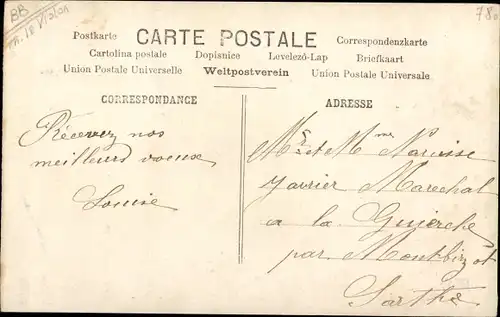 BB
780
Postkarte CARTE POSTALE Correspondenzkarte
Cartolina postale Dopisnice Levelező-Lap Briefkaart
Union Postale Universelle Weltpostverein Union Postale Universale
CORRESPONDANCE
Recevez nos
meilleurs voeux
Louise
ADRESSE
Mr et Mme Narcisse
Maréchal
a la Guierche
par Montbizot
Sarthe